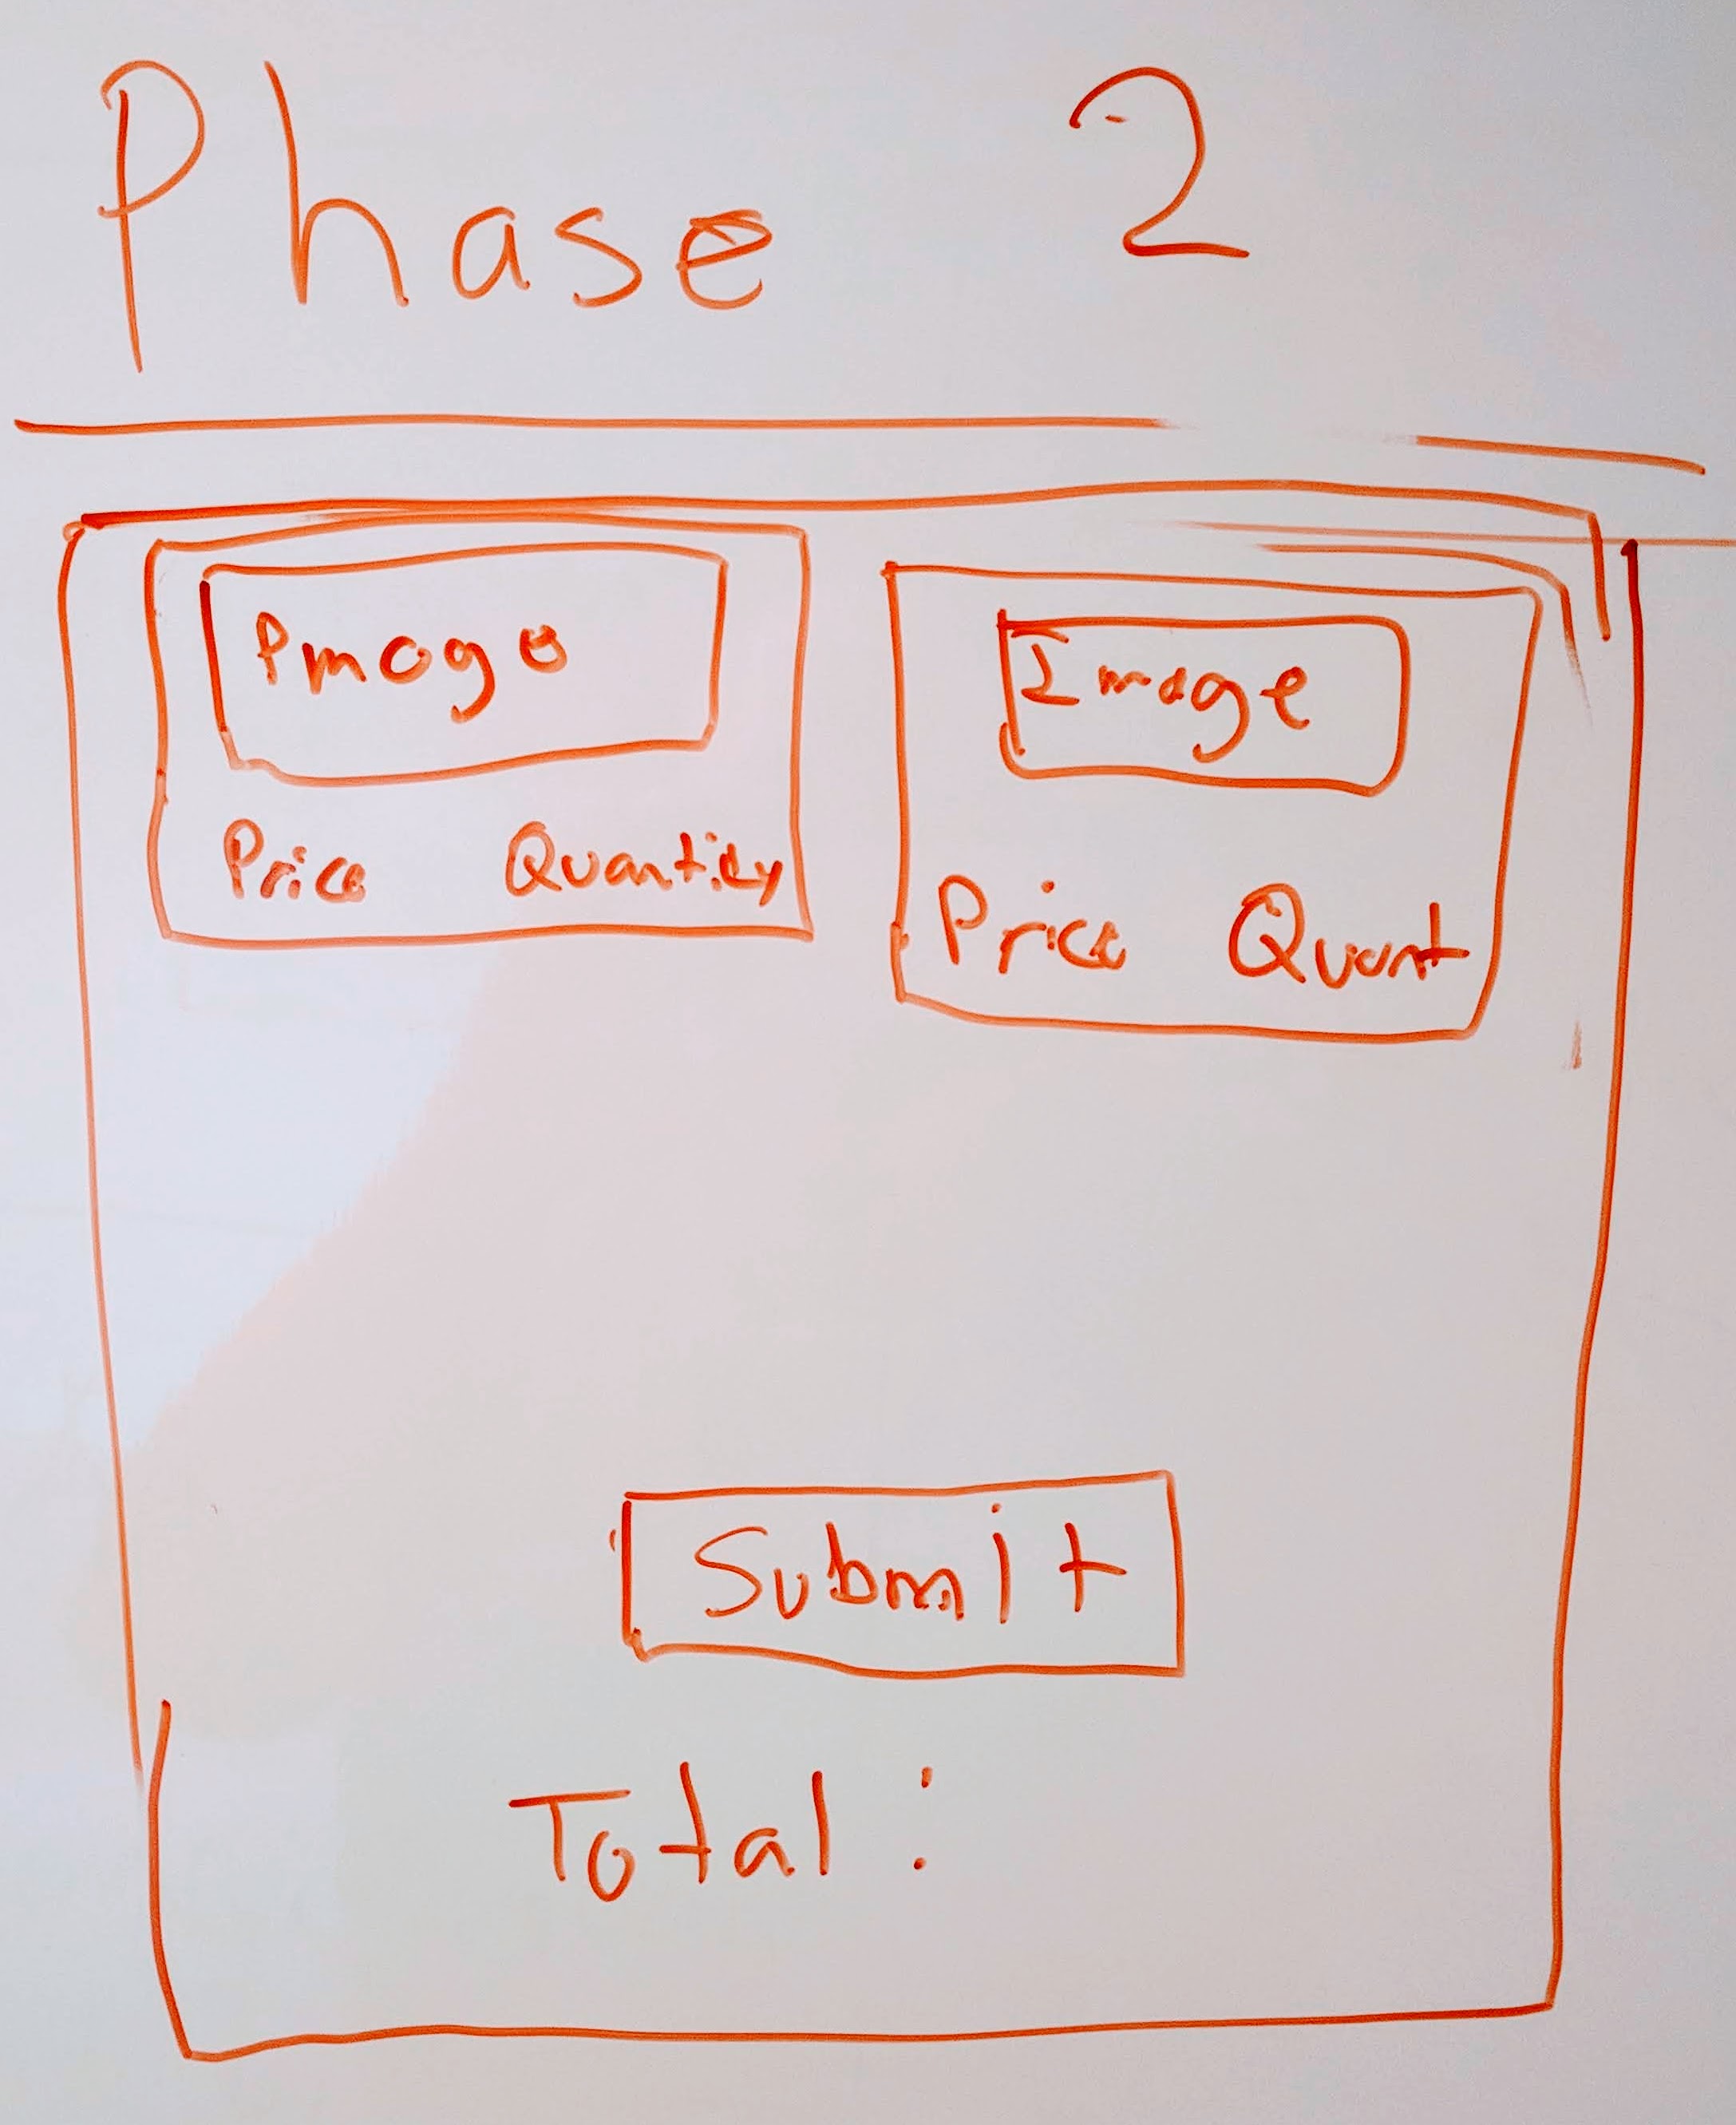 Phase 2
Pmogo
Image
Price Quantity
Price Quant
Submit
Total :